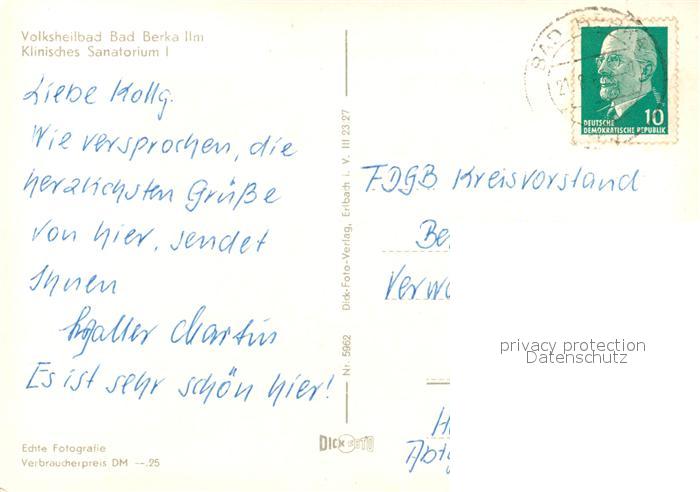 Volksheilbad Bad Berka Ilm
Klinisches Sanatorium I
Liebe Kollg.
Wie versprochen, die
herzlichsten Grüße
von hier, sendet
Ihnen
Martin
Es ist sehr schön hier!
Echte Fotografie
Verbraucherpreis DM --.25
Nr. 5962 Dick-Foto-Verlag, Erlbach i. V. III 23 27
DICK FOTO
BAD BER
DEUTSCHE
DEMOKRATISCHE REPUBLIK
10
FDGB Kreisvorstand
Be
Verwa
privacy protection
Datenschutz
H
Abtg